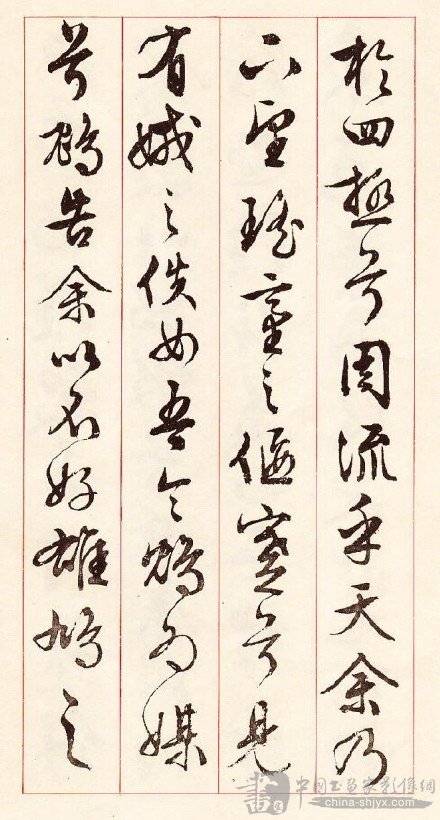 於四極兮周流乎天余乃
下望瑤臺之偃蹇兮見
有娀之佚女吾令鴆為媒
兮鴆告余以不好雄鳩之
中國书画家影像網
china-shjyx.com